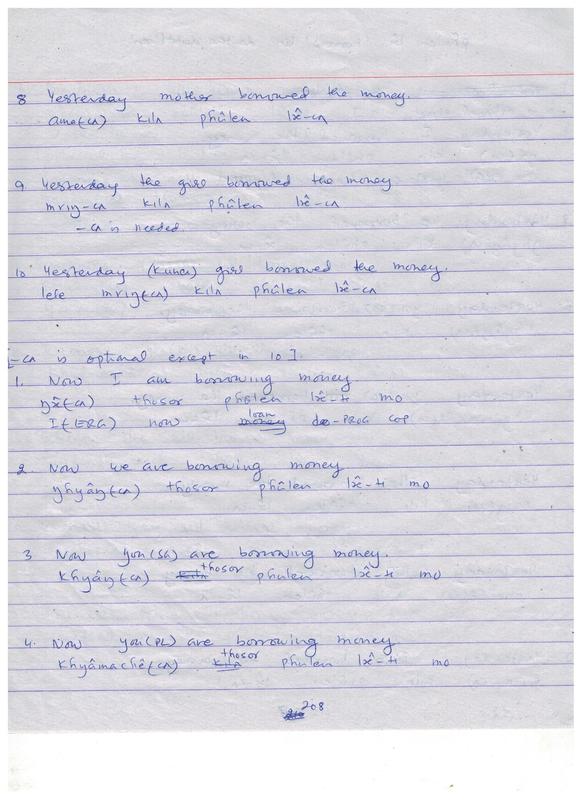 8 Yesterday mother borrowed the money.
ama(-cʌ) kilʌ phûlen lx̂-cʌ
9 Yesterday the girl borrowed the money
mriŋ-cʌ kilʌ phûlen lx̂-cʌ
-cʌ is needed.
10 Yesterday (kunai) girl borrowed the money.
mriŋ(-cʌ) kilʌ phûlen lx̂-cʌ
[-cʌ is optional except in 10].
1. Now I am borrowing money
ŋx̂(-cʌ) thosor phûlen lx̂-ti mo
I(-ERG) now money loan do-PROG COP
2. Now we are borrowing money
ŋhyâŋ(-cʌ) thosor phûlen lx̂-ti mo
3 Now you(SG) are borrowing money.
khyâŋ(-cʌ) kilʌ thosor phulen lx̂-ti mo
4. Now you(PL) are borrowing money
khyâmachê(-cʌ) kilʌ thosor phulen lx̂-ti mo
208